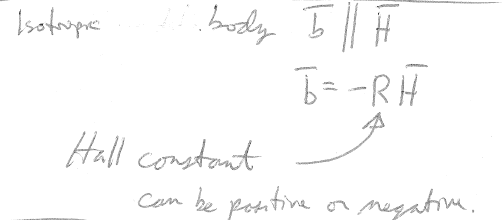 Isotropic body b̅ ∥ H̅
b̅ = -R H̅
Hall constant
can be positive or negative.